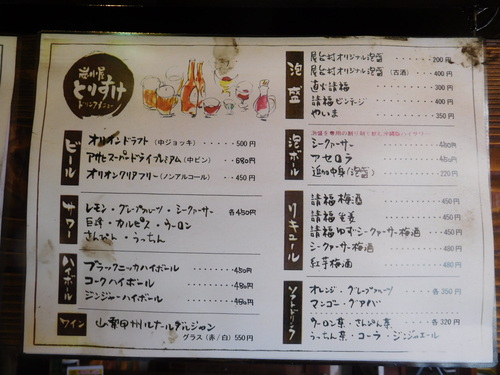 炭火屋
とりすけ
ドリンクメニュー
ビール
オリオンドラフト（中ジョッキ）・・・・・500円
アサヒスーパードライプレミアム（中ビン）・・680円
オリオンクリアフリー（ノンアルコール）・・・450円
サワー
レモン・グレープフルーツ・シークァーサー 各450円
巨峰・カルピス・ウーロン
さんぴん・うっちん
ハイボール
ブラックニッカハイボール・・・・・・450円
コークハイボール・・・・・・480円
ジンジャーハイボール・・・・・・480円
ワイン
山梨甲州ルナールデルジャン
グラス（赤/白）550円
泡盛
屋台村オリジナル泡盛・・・・・200円
屋台村オリジナル泡盛（古酒）・・400円
直火請福・・・・・300円
請福ビンテージ・・・・・400円
やいま・・・・・350円
泡ボール
シークァーサー・・・・・480円
アセロラ・・・・・480円
追加中身（泡盛）・・・・・220円
リキュール
請福梅酒・・・・・450円
請福生姜・・・・・450円
請福ゆずシークァーサー梅酒・・450円
シークァーサー梅酒・・・・480円
紅芋梅酒・・・・・480円
ソフトドリンク
オレンジ・グレープフルーツ・・各350円
マンゴー・グァバ
ウーロン茶・さんぴん茶・・各320円
うっちん茶・コーラ・ジンジャエール